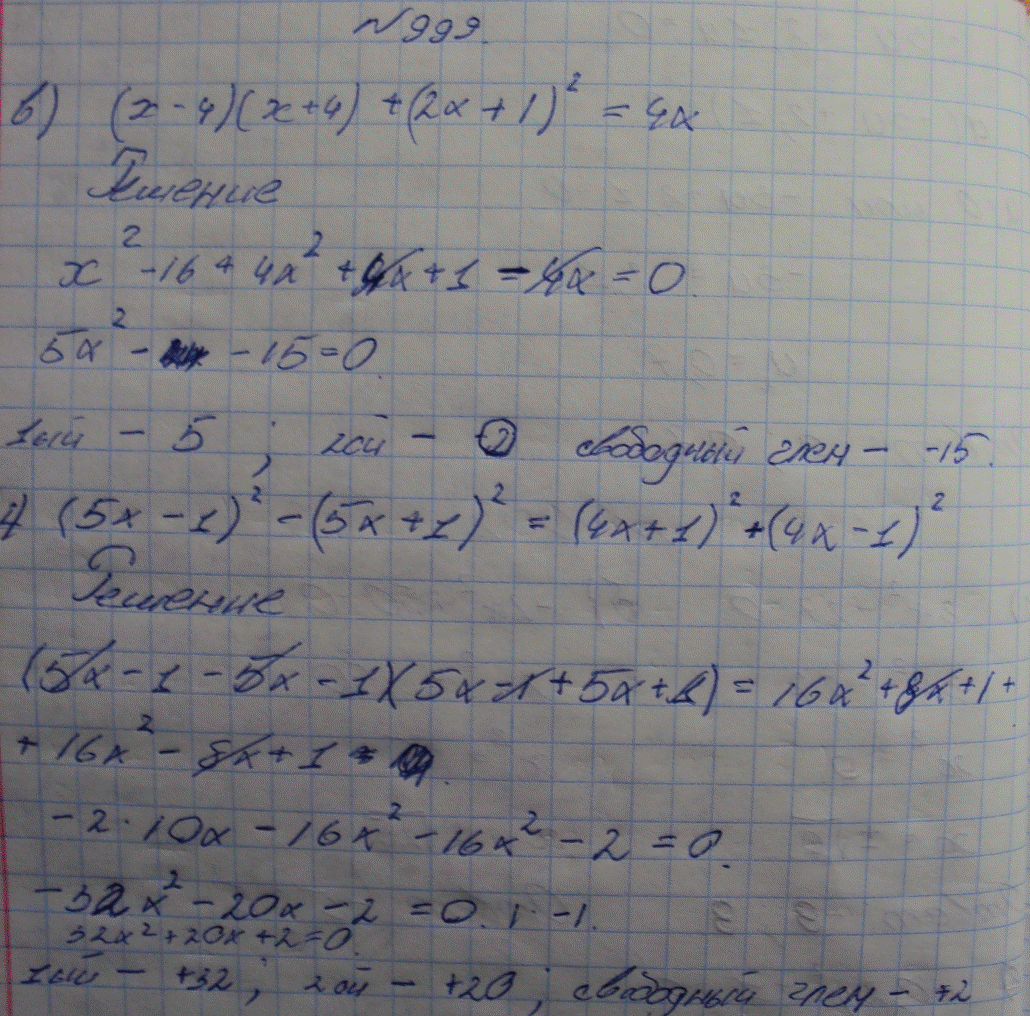 №999.
в) (x-4)(x+4)+(2x+1)² = 4x
Решение
x²-16+4x²+4x+1-4x=0.
5x²- -15=0.
1ый - 5 ; 2ой - свободный член - -15.
(5x-1)²-(5x+1)²=(4x+1)²+(4x-1)²
Решение
(5x-1-5x-1)(5x-1+5x+1)=16x²+8x+1+
+16x²-8x+1
-2·10x-16x²-16x²-2=0.
-32x²-20x-2=0. |·-1.
32x²+20x+2=0.
1ый - +32; 2ой - +20; свободный член - +2